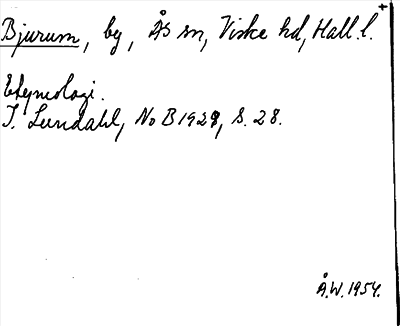 Bjurum, by, Ås sn, Viske hd, Hall. l. +
Etymologi.
I. Lundahl, NoB 1928, S. 28.
Å.W. 1954.